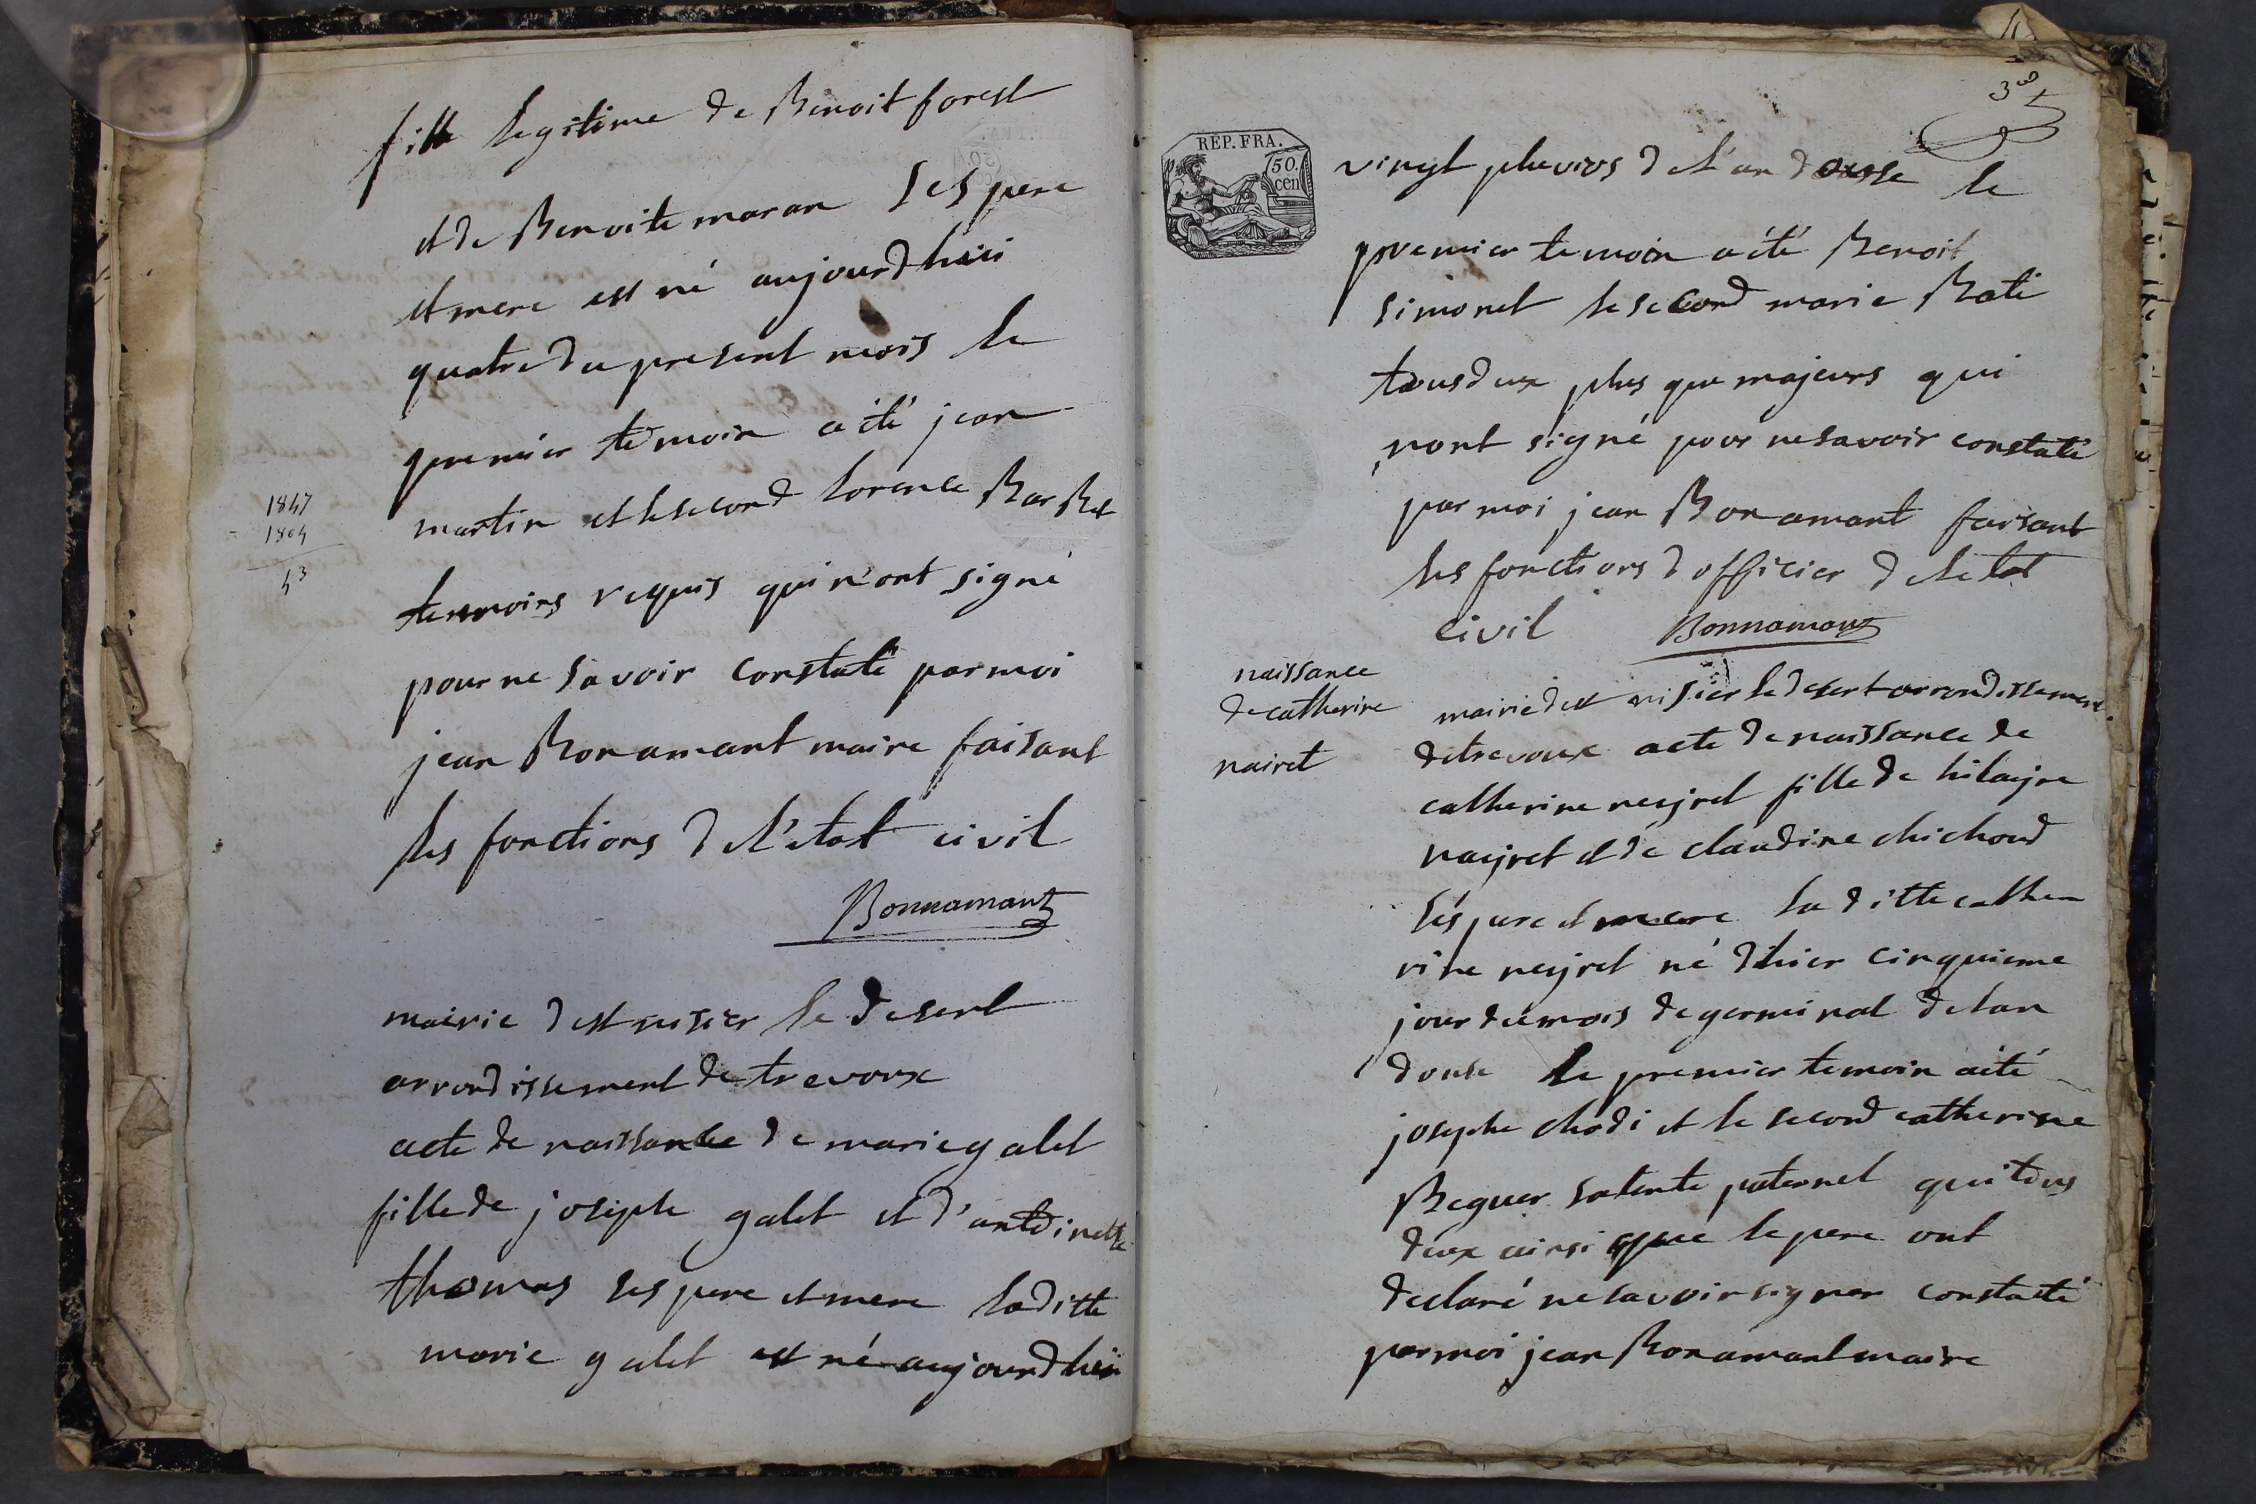 fille legitime de Benoit forest
et de Benoite maran ses pere
et mere est né aujourdhui
quatre du present mois le
premier temoin a été jean
martin et le second lorence Barbet
temoins requis qui n'ont signé
pour ne savoir constaté par moi
jean Bonamant maire faisant
les fonctions de l'etat civil
Bonnamant
1847
1804
43
mairie dest nisier le desert
arrondissement de trevoux
acte de naissance de marie galet
fille de joseph galet et d'antoinette
thomas ses pere et mere laditte
marie galet est né aujourdhui
38
RÉP. FRA.
50.
cen
vingt pluvios de l'an dousse le
premier temoin a été Benoit
simonet le second marie Bati
tous deux plus que majeurs qui
nont signé pour ne savoir constaté
par moi jean Bonamant faisant
les fonctions d officier de letat
civil Bonnamant
naissance
de catherine
nairet
mairie dest nisier le desert arrondissement
de trevoux acte de naissance de
catherine neyret fille de hilayre
nayret et de claudine chichoud
ses pere et mere la ditte cathe
rine neyret né dhier cinquieme
jour du mois de germinal de lan
douse le premier temoin a été
joseph chodi et le second catherine
Beguer satente paternel qui tous
deux ainsi que le pere ont
declaré ne savoir signer constaté
par moi jean Bonamant maire